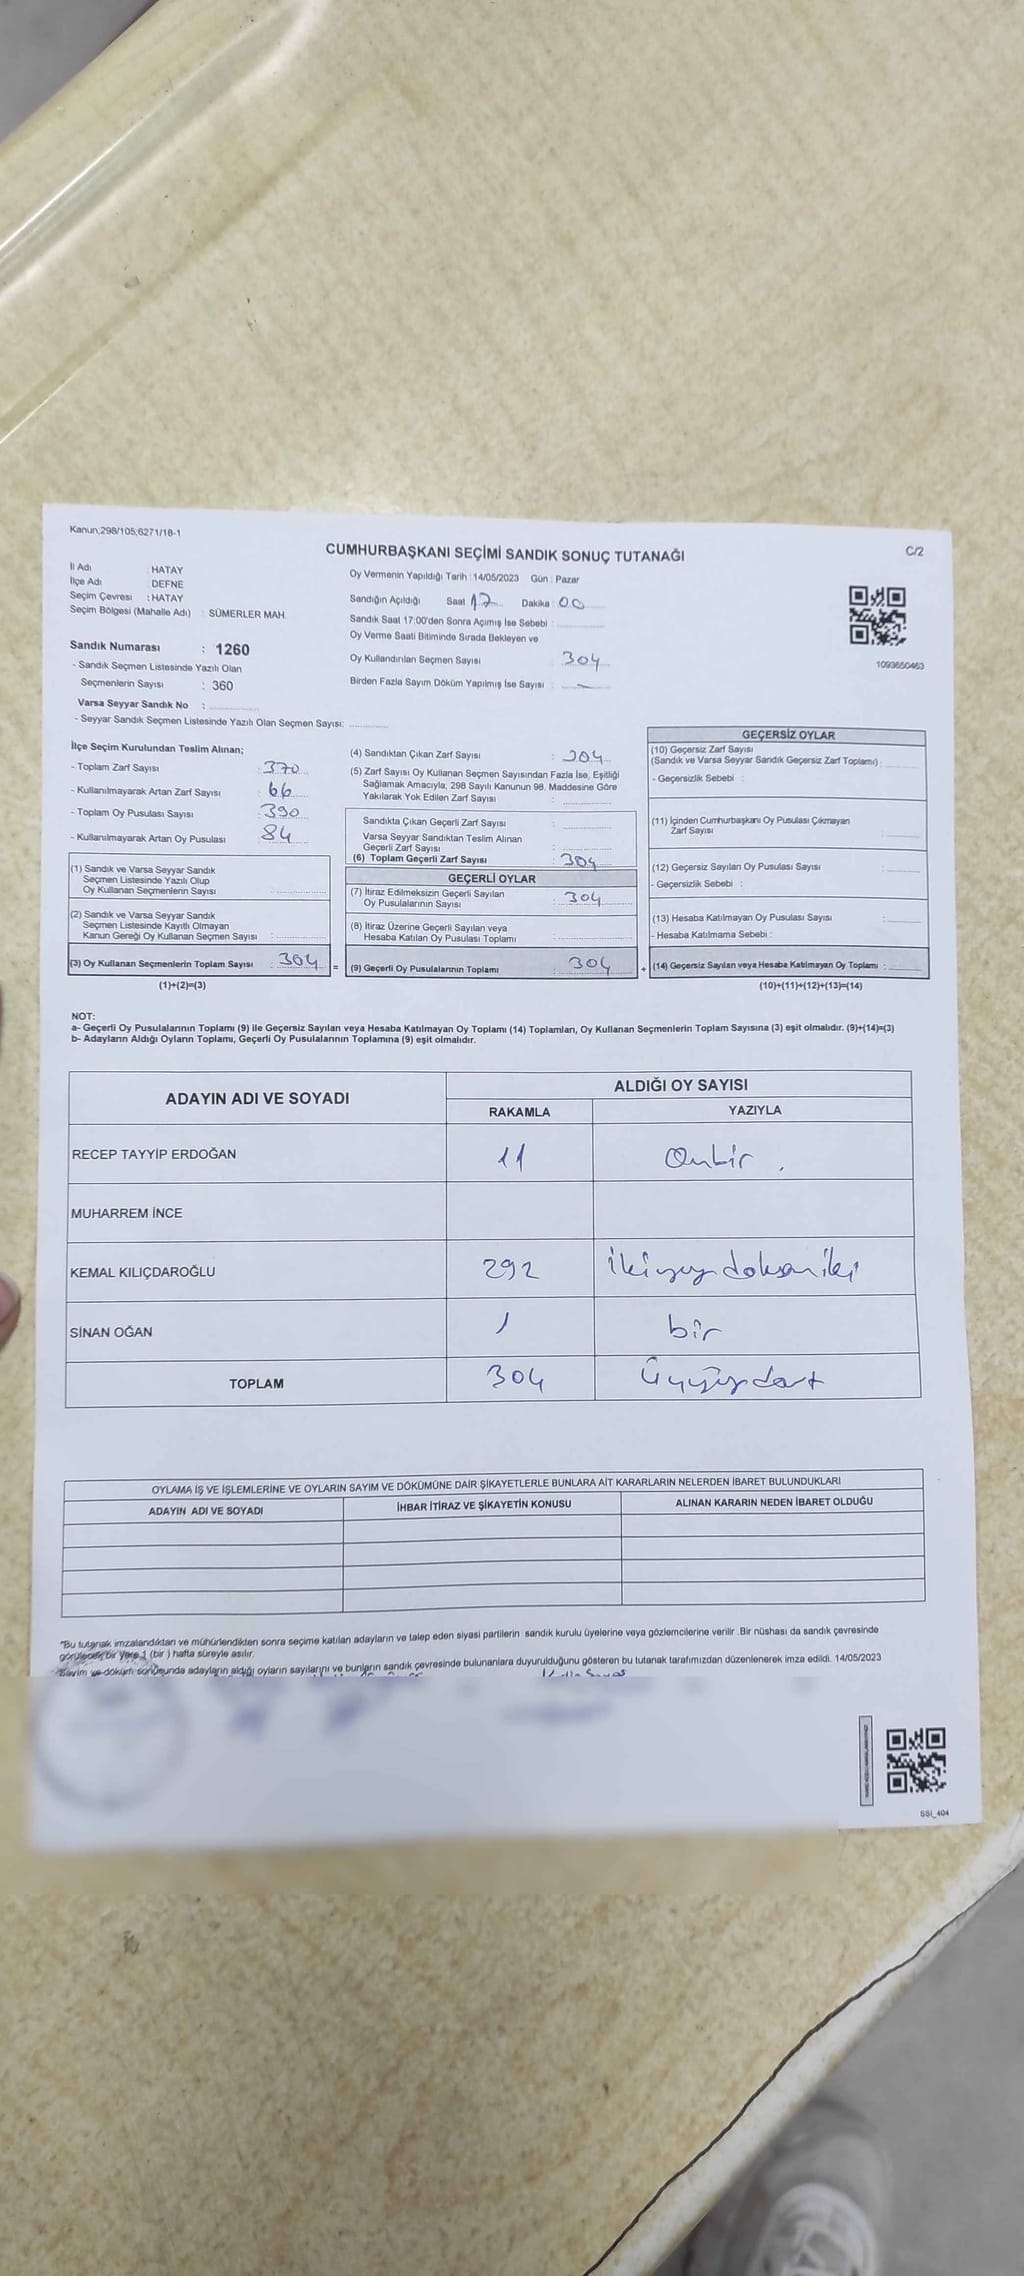 Kanun;298/105;6271/18-1
CUMHURBAŞKANI SEÇİMİ SANDIK SONUÇ TUTANAĞI
C/2
İl Adı : HATAY
İlçe Adı : DEFNE
Seçim Çevresi : HATAY
Seçim Bölgesi (Mahalle Adı) : SÜMERLER MAH.
Oy Vermenin Yapıldığı Tarih : 14/05/2023 Gün : Pazar
Sandığın Açıldığı Saat 17 Dakika : 00
Sandık Saat 17:00'den Sonra Açımış İse Sebebi :
Oy Verme Saati Bitiminde Sırada Bekleyen ve
Oy Kullandırılan Seçmen Sayısı : 304
Birden Fazla Sayım Döküm Yapılmış İse Sayısı : -
1093650463
Sandık Numarası : 1260
- Sandık Seçmen Listesinde Yazılı Olan
Seçmenlerin Sayısı : 360
Varsa Seyyar Sandık No :
- Seyyar Sandık Seçmen Listesinde Yazılı Olan Seçmen Sayısı:
İlçe Seçim Kurulundan Teslim Alınan;
- Toplam Zarf Sayısı : 370
- Kullanılmayarak Artan Zarf Sayısı : 66
- Toplam Oy Pusulası Sayısı : 390
- Kullanılmayarak Artan Oy Pusulası : 84
(1) Sandık ve Varsa Seyyar Sandık
Seçmen Listesinde Yazılı Olup
Oy Kullanan Seçmenlerin Sayısı :
(2) Sandık ve Varsa Seyyar Sandık
Seçmen Listesinde Kayıtlı Olmayan
Kanun Gereği Oy Kullanan Seçmen Sayısı :
(3) Oy Kullanan Seçmenlerin Toplam Sayısı : 304 =
(1)+(2)=(3)
(4) Sandıktan Çıkan Zarf Sayısı : 304
(5) Zarf Sayısı Oy Kullanan Seçmen Sayısından Fazla İse, Eşitliği
Sağlamak Amacıyla; 298 Sayılı Kanunun 98. Maddesine Göre
Yakılarak Yok Edilen Zarf Sayısı :
Sandıkta Çıkan Geçerli Zarf Sayısı :
Varsa Seyyar Sandıktan Teslim Alınan
Geçerli Zarf Sayısı :
(6) Toplam Geçerli Zarf Sayısı : 304
GEÇERLİ OYLAR
(7) İtiraz Edilmeksizin Geçerli Sayılan
Oy Pusulalarının Sayısı : 304
(8) İtiraz Üzerine Geçerli Sayılan veya
Hesaba Katılan Oy Pusulası Toplamı :
(9) Geçerli Oy Pusulalarının Toplamı : 304 +
GEÇERSİZ OYLAR
(10) Geçersiz Zarf Sayısı
(Sandık ve Varsa Seyyar Sandık Geçersiz Zarf Toplamı) :
- Geçersizlik Sebebi :
(11) İçinden Cumhurbaşkanı Oy Pusulası Çıkmayan
Zarf Sayısı :
(12) Geçersiz Sayılan Oy Pusulası Sayısı :
- Geçersizlik Sebebi :
(13) Hesaba Katılmayan Oy Pusulası Sayısı :
- Hesaba Katılmama Sebebi :
(14) Geçersiz Sayılan veya Hesaba Katılmayan Oy Toplamı :
(10)+(11)+(12)+(13)=(14)
NOT:
a- Geçerli Oy Pusulalarının Toplamı (9) ile Geçersiz Sayılan veya Hesaba Katılmayan Oy Toplamı (14) Toplamları, Oy Kullanan Seçmenlerin Toplam Sayısına (3) eşit olmalıdır. (9)+(14)=(3)
b- Adayların Aldığı Oyların Toplamı, Geçerli Oy Pusulalarının Toplamına (9) eşit olmalıdır.
ADAYIN ADI VE SOYADI ALDIĞI OY SAYISI
RAKAMLA YAZIYLA
RECEP TAYYİP ERDOĞAN 11 Onbir
MUHARREM İNCE
KEMAL KILIÇDAROĞLU 292 ikiyüzdoksaniki
SİNAN OĞAN 1 bir
TOPLAM 304 Üçyüzdört
OYLAMA İŞ VE İŞLEMLERİNE VE OYLARIN SAYIM VE DÖKÜMÜNE DAİR ŞİKAYETLERLE BUNLARA AİT KARARLARIN NELERDEN İBARET BULUNDUKLARI
ADAYIN ADI VE SOYADI İHBAR İTİRAZ VE ŞİKAYETİN KONUSU ALINAN KARARIN NEDEN İBARET OLDUĞU
*Bu tutanak imzalandıktan ve mühürlendikten sonra seçime katılan adayların ve talep eden siyasi partilerin sandık kurulu üyelerine veya gözlemcilerine verilir. Bir nüshası da sandık çevresinde
görülecek bir yere 1 (bir ) hafta süreyle asılır.
*Sayım ve döküm sonucunda adayların aldığı oyların sayılarını ve bunların sandık çevresinde bulunanlara duyurulduğunu gösteren bu tutanak tarafımızdan düzenlenerek imza edildi. 14/05/2023
SSI_404